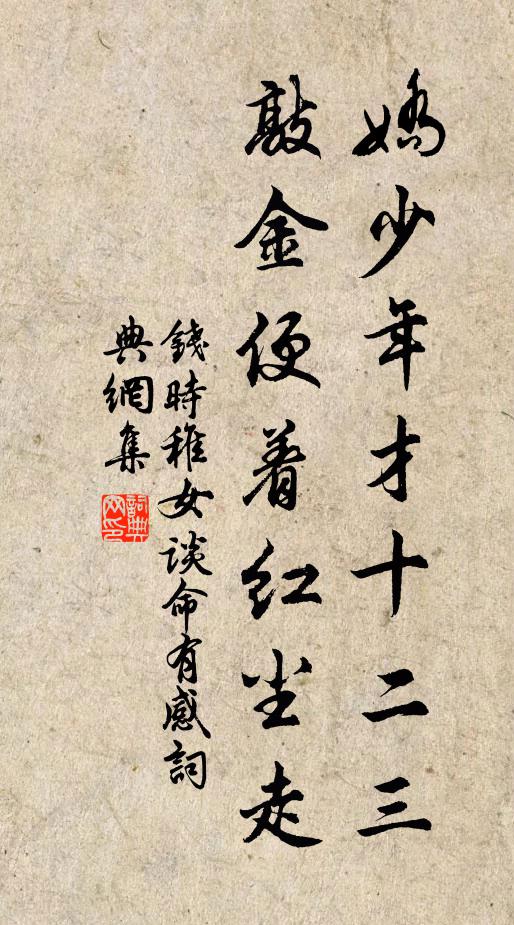 娇少年才十二三
敲金便着红尘走
錢時稚女談命有感詞
典網集
詞典
网印